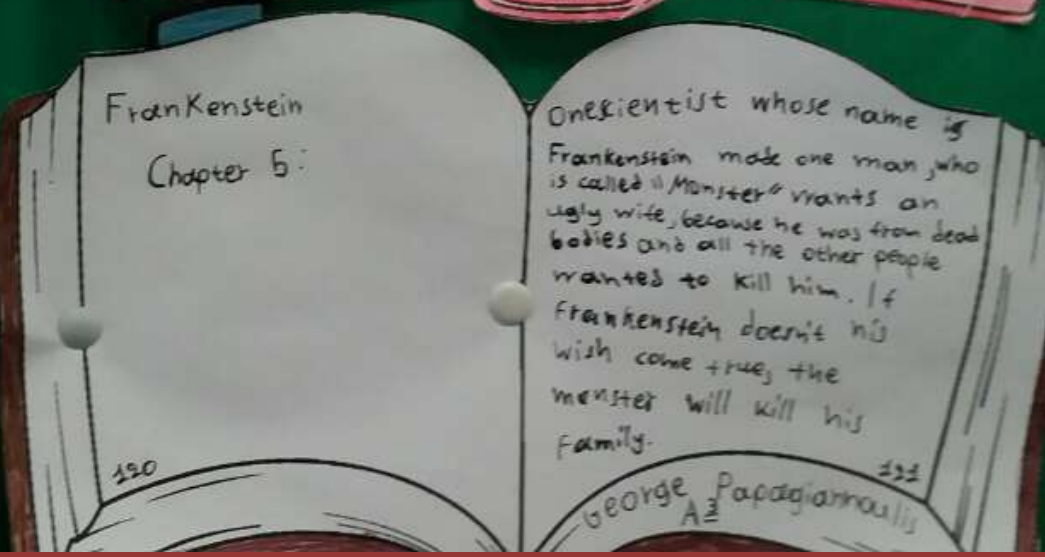 Frankenstein
Chapter 5:
120
Onescientist whose name is
Frankenstein made one man, who
is called "Monster" wants an
ugly wife, because he was from dead
bodies and all the other people
wanted to kill him. If
Frankenstein doesn't his
wish come true, the
monster will kill his
family.
121
George Papagiannoulis
A3